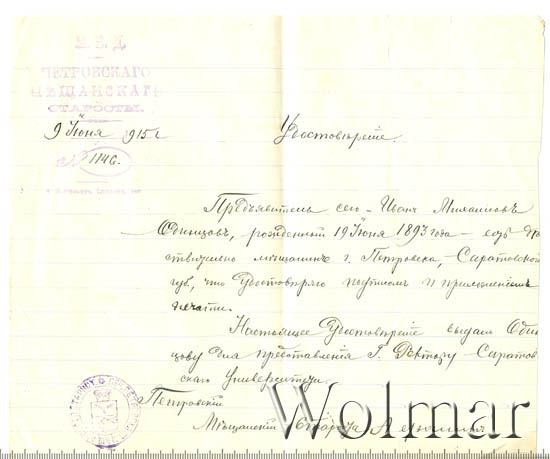 М. В. Д.
ПЕТРОВСКАГО
МѢЩАНСКАГО
СТАРОСТЫ.
9 Іюня 1915 г.
№ 1146.
Удостовѣреніе.
Предъявитель сего – Иванъ Михаиловъ
Одинцовъ, рожденный 19 Іюня 1893 года – есть дѣй
ствительно мѣщанинъ г. Петровска, Саратовской
губ., что удостовѣряю подписью и приложеніемъ
печати.
Настоящее удостовѣреніе выдано Один
цову для представленія Г. Ректору Саратов
скаго Университета.
Петровскій
Мѣщанскій Староста
Wolmar